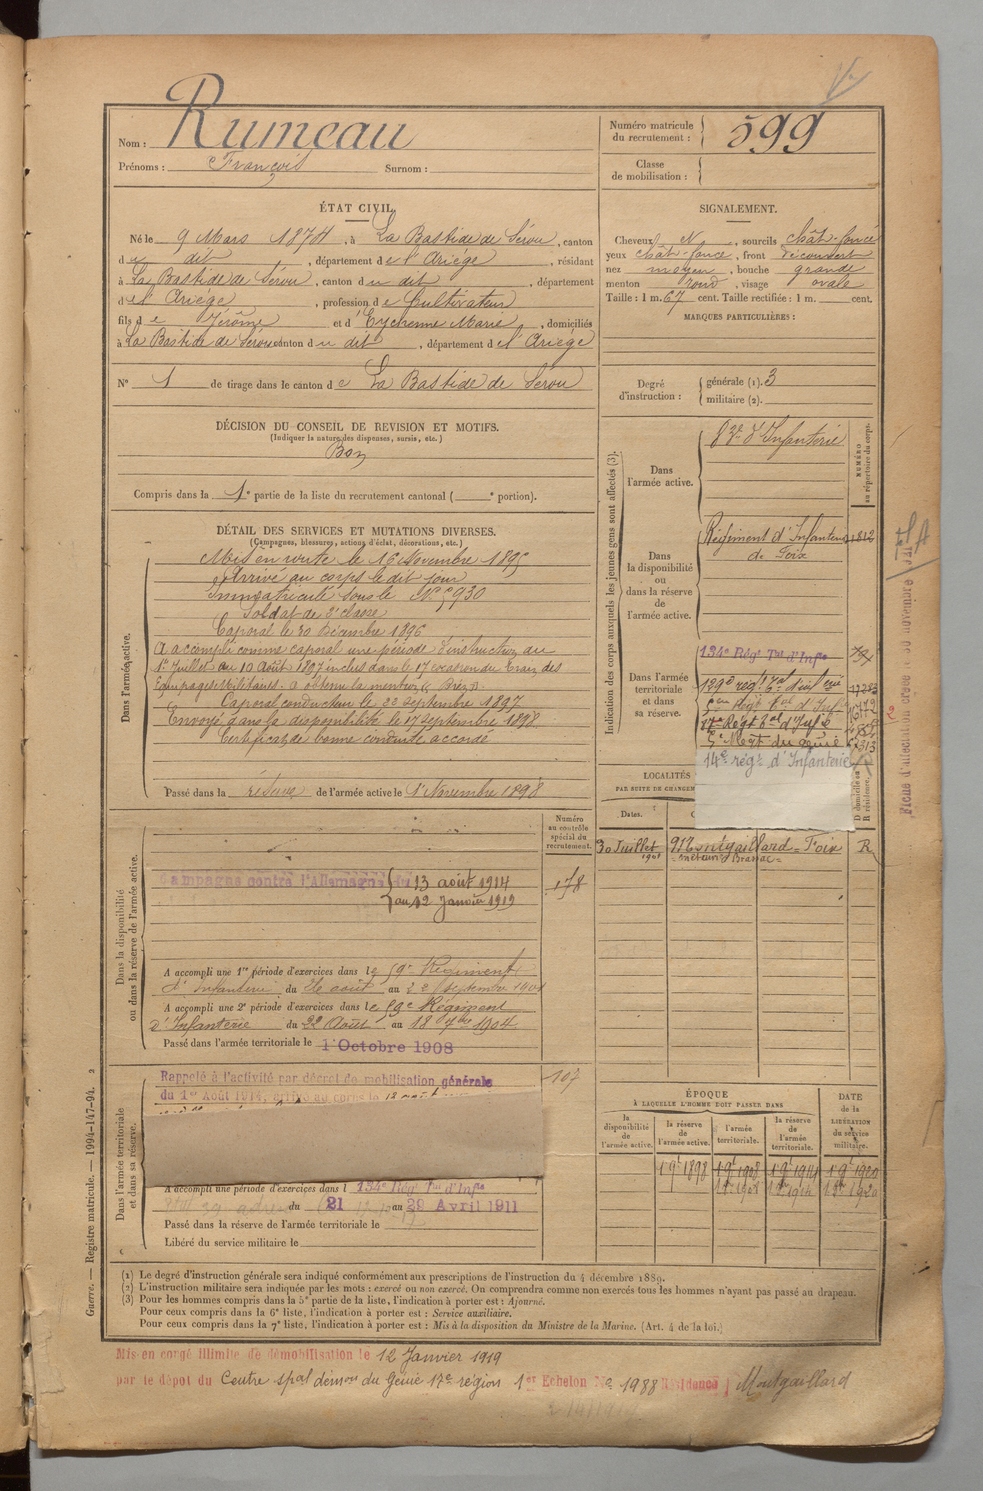 Nom : Rumeau
Prénoms : François Surnom :
Numéro matricule du recrutement : 599
Classe de mobilisation :
ÉTAT CIVIL.
Né le 9 Mars 1874, à La Bastide de Sérou, canton
du dit, département de l'Ariége, résidant
à La Bastide de Sérou, canton du dit, département
de l'Ariége, profession de Cultivateur
fils de Jérôme et d'Eychenne Marie, domiciliés
à La Bastide de Sérou canton du dit, département de l'Ariége
N° 1 de tirage dans le canton de La Bastide de Sérou
SIGNALEMENT.
Cheveux N, sourcils chât-foncé
yeux chât-foncé, front découvert
nez moyen, bouche grande
menton rond, visage ovale
Taille : 1 m. 67 cent. Taille rectifiée : 1 m. cent.
MARQUES PARTICULIÈRES :
Degré d'instruction : générale (1). 3
militaire (2).
DÉCISION DU CONSEIL DE REVISION ET MOTIFS.
(Indiquer la nature des dispenses, sursis, etc.)
Bon
Compris dans la 1e partie de la liste du recrutement cantonal ( e portion).
DÉTAIL DES SERVICES ET MUTATIONS DIVERSES.
(Campagnes, blessures, actions d'éclat, décorations, etc.)
Dans l'armée active.
Mis en route le 16 Novembre 1895
Arrivé au corps le dit jour
Immatriculé sous le N°
Soldat de 2e classe
Caporal le 30 Décembre 1896
A accompli comme caporal une période d'instruction du
1er Juillet au 10 Août 1897 inclus dans le 17 escadron du Train des
Equipages Militaires. a obtenu la mention
Caporal conducteur le 22 septembre 1897
Envoyé dans la disponibilité le 17 Septembre 1898
Certificat de bonne conduite accordé
Passé dans la réserve de l'armée active le 1er Novembre 1898
Indication des corps auxquels les jeunes gens sont affectés (3).
NUMÉRO au répertoire du corps.
Dans l'armée active.
83e d'Infanterie
Dans la disponibilité ou dans la réserve de l'armée active.
Régiment d'Infanterie 1812
de Foix
Dans l'armée territoriale et dans sa réserve.
134e Régt Tal d'Infie
129e régt Tal d'infie
17e Régt Tal d'Infie
5e Régt du génie
14e régt d'Infanterie
LOCALITÉS
PAR SUITE DE CHANGEM
Dates.
D domicile ou R résidence.
30 Juillet 1901 Montgaillard = Foix R
Dans la disponibilité ou dans la réserve de l'armée active.
Numéro au contrôle spécial du recrutement.
178
Campagne contre l'Allemagne du 13 août 1914
au 12 Janvier 1919
A accompli une 1re période d'exercices dans le 59e Régiment
d'Infanterie du 26 août au 22 septembre 1901
A accompli une 2e période d'exercices dans le 59e Régiment
d'Infanterie du 22 Août au 18 7bre 1904
Passé dans l'armée territoriale le 1 Octobre 1908
Dans l'armée territoriale et dans sa réserve.
107
Rappelé à l'activité par décret de mobilisation générale
du 1er Août 1914, arrivé au corps le
A accompli une période d'exercices dans l 134e Régt Tal d'Infie
du 21 au 29 Avril 1911
Passé dans la réserve de l'armée territoriale le
Libéré du service militaire le
ÉPOQUE
À LAQUELLE L'HOMME DOIT PASSER DANS
la disponibilité de l'armée active.
la réserve de l'armée active.
l'armée territoriale.
la réserve de l'armée territoriale.
DATE de la LIBÉRATION du service militaire.
1 9bre 1898 1 9bre 1908 1 9bre 1914 1 9bre 1920
(1) Le degré d'instruction générale sera indiqué conformément aux prescriptions de l'instruction du 4 décembre 1889.
(2) L'instruction militaire sera indiquée par les mots : exercé ou non exercé. On comprendra comme non exercés tous les hommes n'ayant pas passé au drapeau.
(3) Pour les hommes compris dans la 5e partie de la liste, l'indication à porter est : Ajourné.
Pour ceux compris dans la 6e liste, l'indication à porter est : Service auxiliaire.
Pour ceux compris dans la 7e liste, l'indication à porter est : Mis à la disposition du Ministre de la Marine. (Art. 4 de la loi.)
Guerre. — Registre matricule. — 1994-147-94. 2
Mis en congé illimité de démobilisation le 12 Janvier 1919
par le dépôt du Centre spal démon du Génie 17e région 1er Echelon No 1988 Résidence Montgaillard